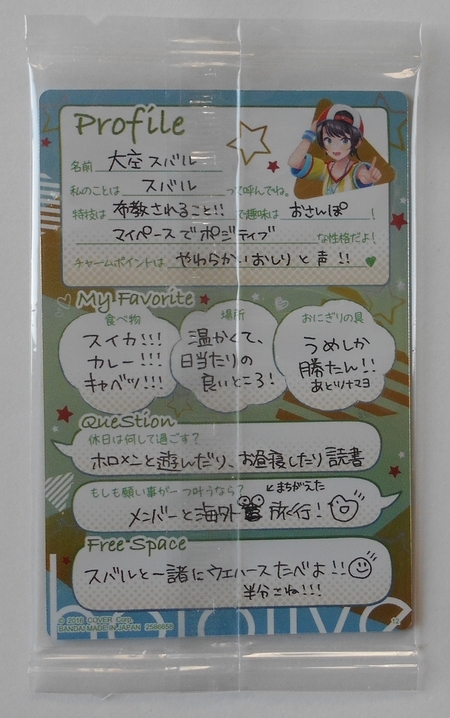 Profile
名前 大空スバル
私のことは スバル って呼んでね。
特技は 布教されること!! で趣味は おさんぽ !
マイペースでポジティブ な性格だよ!
チャームポイントは やわらかいおしりと声!!
My Favorite
食べ物
スイカ!!!
カレー!!!
キャベツ!!!
場所
温かくて、
日当たりの
良いところ!
おにぎりの具
うめしか
勝たん!!
あとツナマヨ
QueStion
休日は何して過ごす?
ホロメンと遊んだり、お昼寝したり読書
もしも願い事が一つ叶うなら? ←まちがえた
メンバーと海外旅行!
Free Space
スバルと一諸にウエハースたべよ!!
半分こね!!!
hololive
© 2016 COVER Corp.
BANDAI MADE IN JAPAN
12